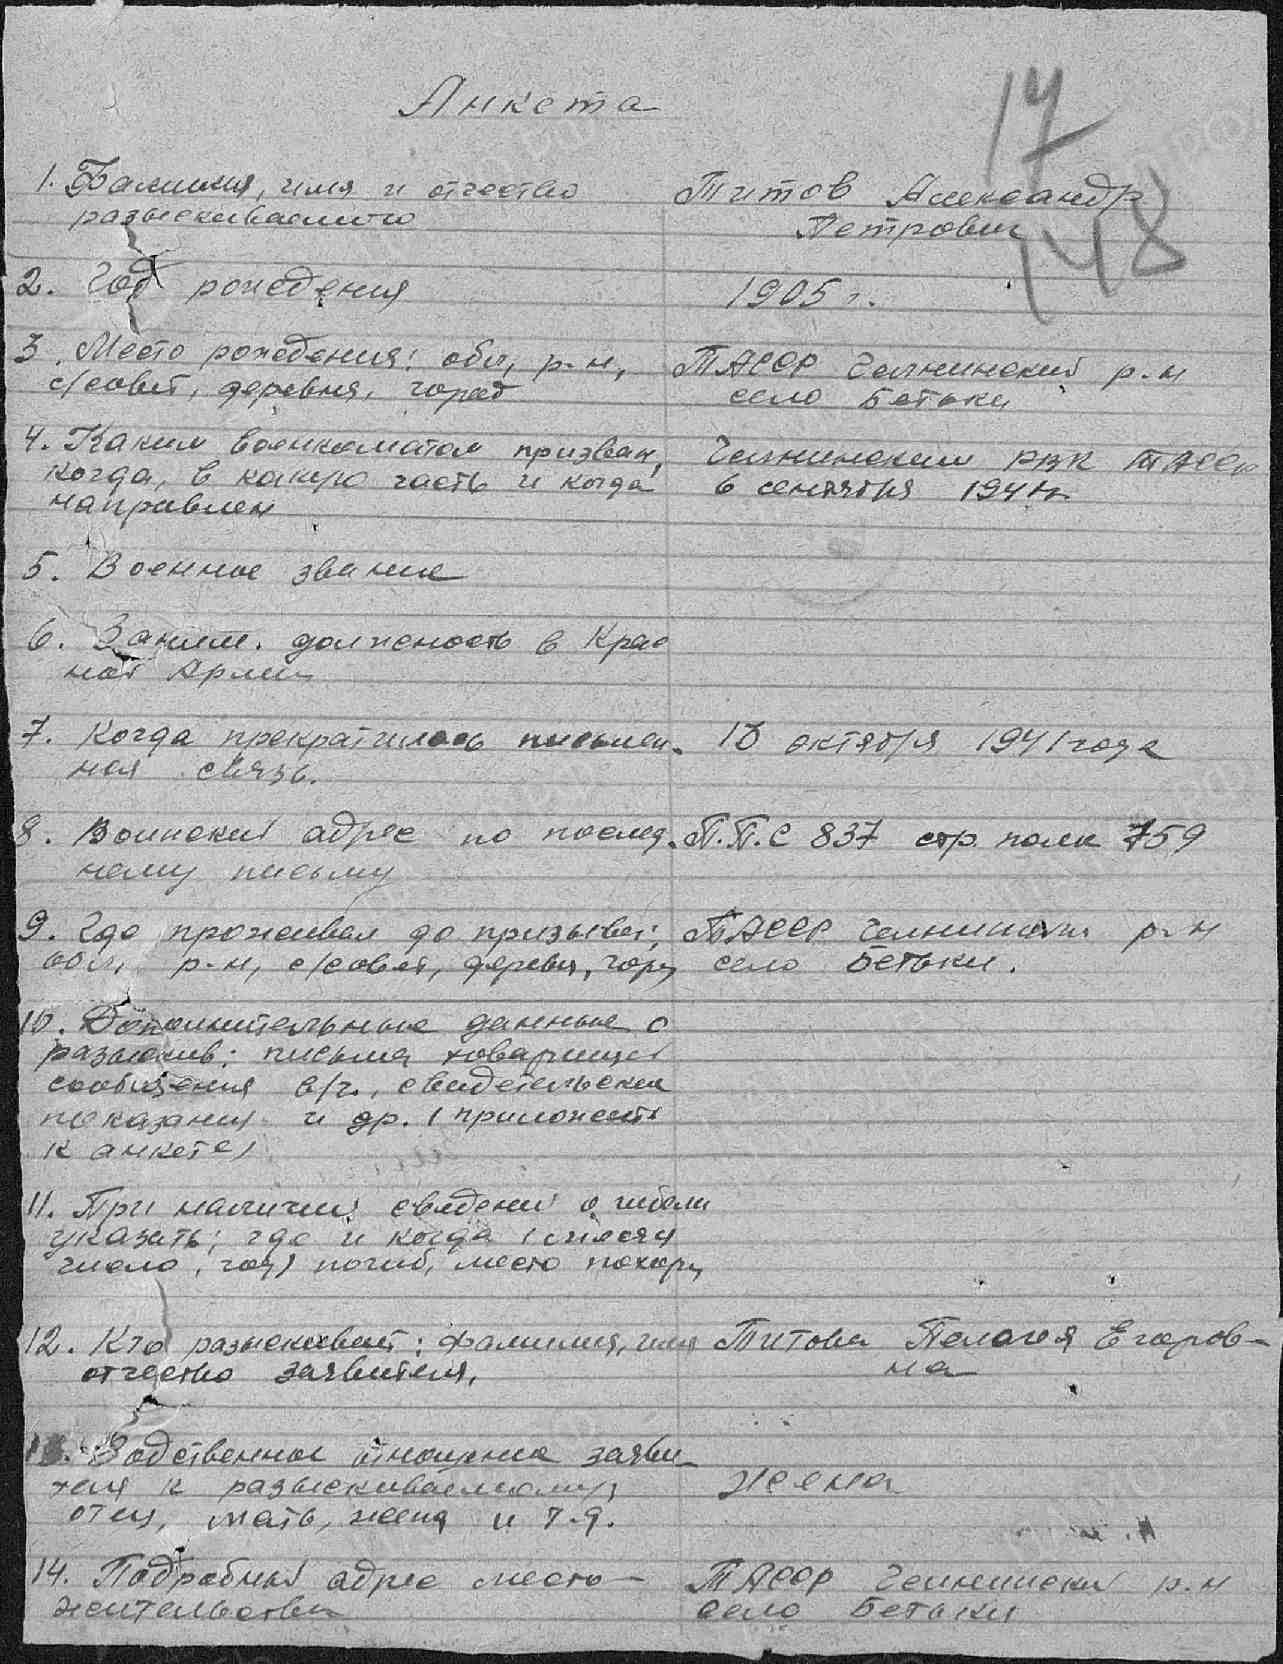 Анкета
17
148
1. Фамилия, имя и отчество
разыскиваемого
Титов Александр
Петрович
2. Год рождения
1905 г.
3. Место рождения: обл, р-н,
с/совет, деревня, город
ТАССР Челнинский р-н
село Бетьки
4. Каким военкоматом призван,
когда, в какую часть и когда
направлен
Челнинским РВК ТАССР
6 сентября 1941
5. Военное звание
6. Заним. должность в Крас
ной Армии
7. Когда прекратилась письмен-
ная связь.
октября 1941 года
8. Воинский адрес по послед.
нему письму
П.П.С 837 стр. полк 759
9. Где проживал до призыва:
обл, р-н, с/совет, деревня, город
ТАССР Челнинский р-н
село Бетьки.
10. Дополнительные данные о
разыскив: письма товарищей
сообщения в/ч., свидетельские
показания и др. (приложить
к анкете)
11. При наличии сведений о гибели
указать; где и когда (месяц
число, год) погиб, место похор,
12. Кто разыскивает: фамилия, имя
отчество заявителя,
Титова Пелагея Егоров-
на
13. Родственное отношение заяви-
теля к разыскиваемому,
отец, мать, жена и т.д.
жена
14. Подробный адрес место-
жительства
ТАССР Челнинский р-н
село Бетьки